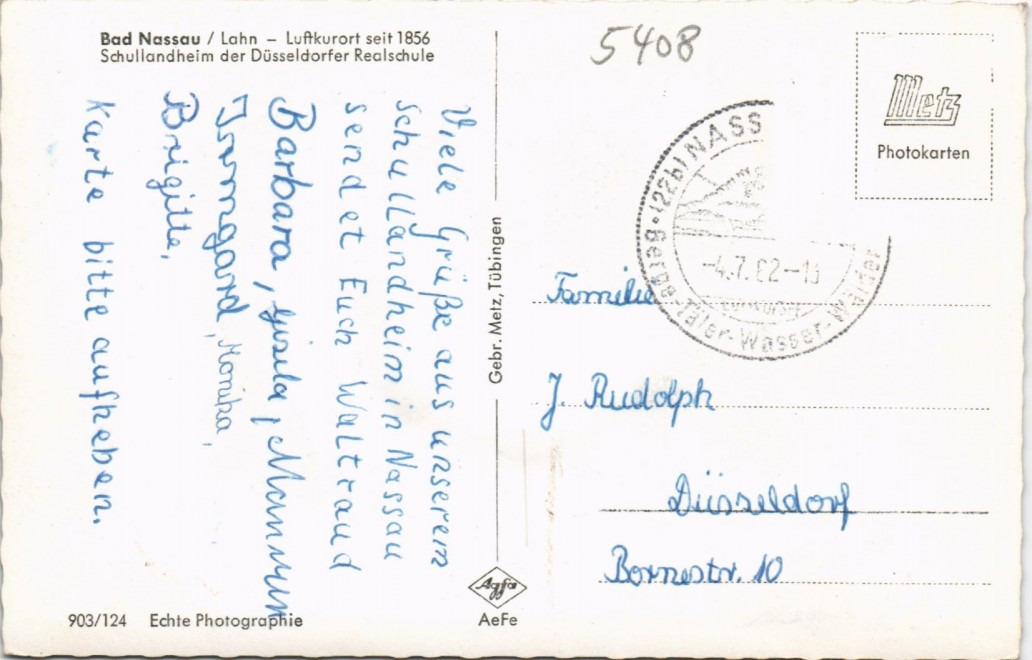 Bad Nassau / Lahn – Luftkurort seit 1856
Schullandheim der Düsseldorfer Realschule
Viele Grüße aus unserem
Schullandheim in Nassau
sendet Euch Waltraud
Barbara, Gisela,
Irmgard, Monika,
Brigitte,
Karte bitte aufheben.
903/124 Echte Photographie
Gebr. Metz, Tübingen
Agfa
AeFe
5408
Metz
Photokarten
(22b) NASS
Berge-Täler-Wasser-Wälder
-4.7.62-
Familie
J. Rudolph
Düsseldorf
Bornestr. 10